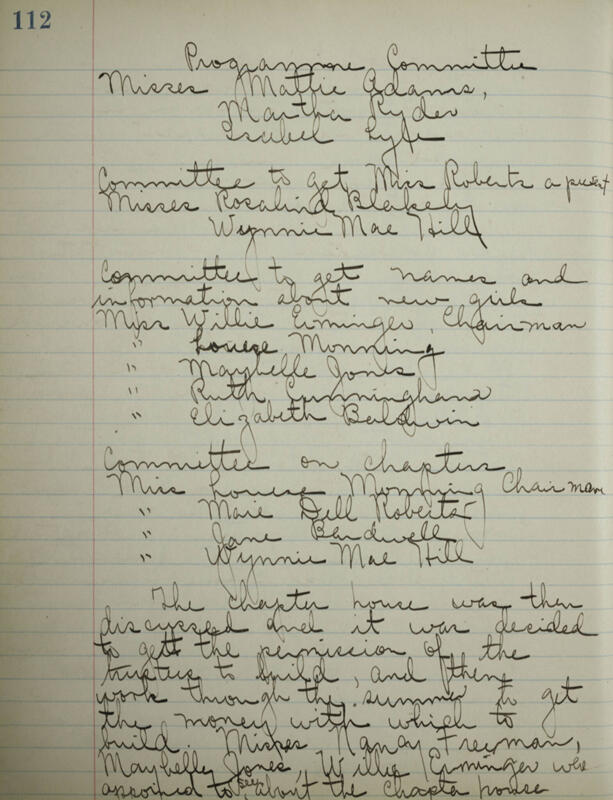 112
Programme Committee
Misses Mattie Adams,
Martha Ryder
Isabel Lyfe
Committee to get Miss Roberts a present
Misses Rosalind Blakely
Wynnie Mae Hill
Committee to get names and
information about new girls
Miss Willie Erminger, Chairman
" Louise Monning
" Maybelle Jones
" Ruth Cunningham
" Elizabeth Baldwin
Committee on chapters
Miss Louise Monning Chairman
" Marie Dell Roberts
" Jane Bardwell
" Wynnie Mae Hill
The chapter house was then
discussed and it was decided
to get the permission of the
trustees to build, and then
work through the summer to get
the money with which to
build. Misses Nancy Freeman,
Maybelle Jones, Willie Erminger were
appoined to see about the chapter house